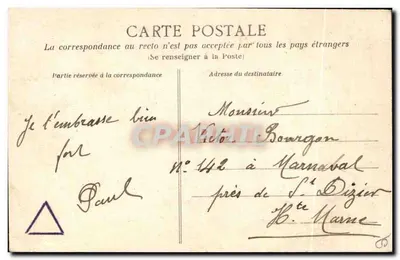 CARTE POSTALE
La correspondance au recto n'est pas acceptée par tous les pays étrangers
(Se renseigner à la Poste)
Partie réservée à la correspondance
Adresse du destinataire
Je t'embrasse bien
fort
Paul
Monsieur
Victor Bourgon
N° 142 à Marnaval
près de St Dizier
Hte Marne